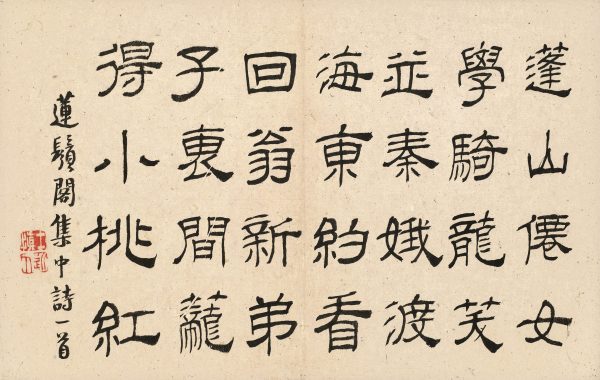 蓬山僊女
學騎龍笑
並秦娥渡
海東約看
回翁新弟
子間蘢
得小桃紅
蓮鬚閣集中詩一首